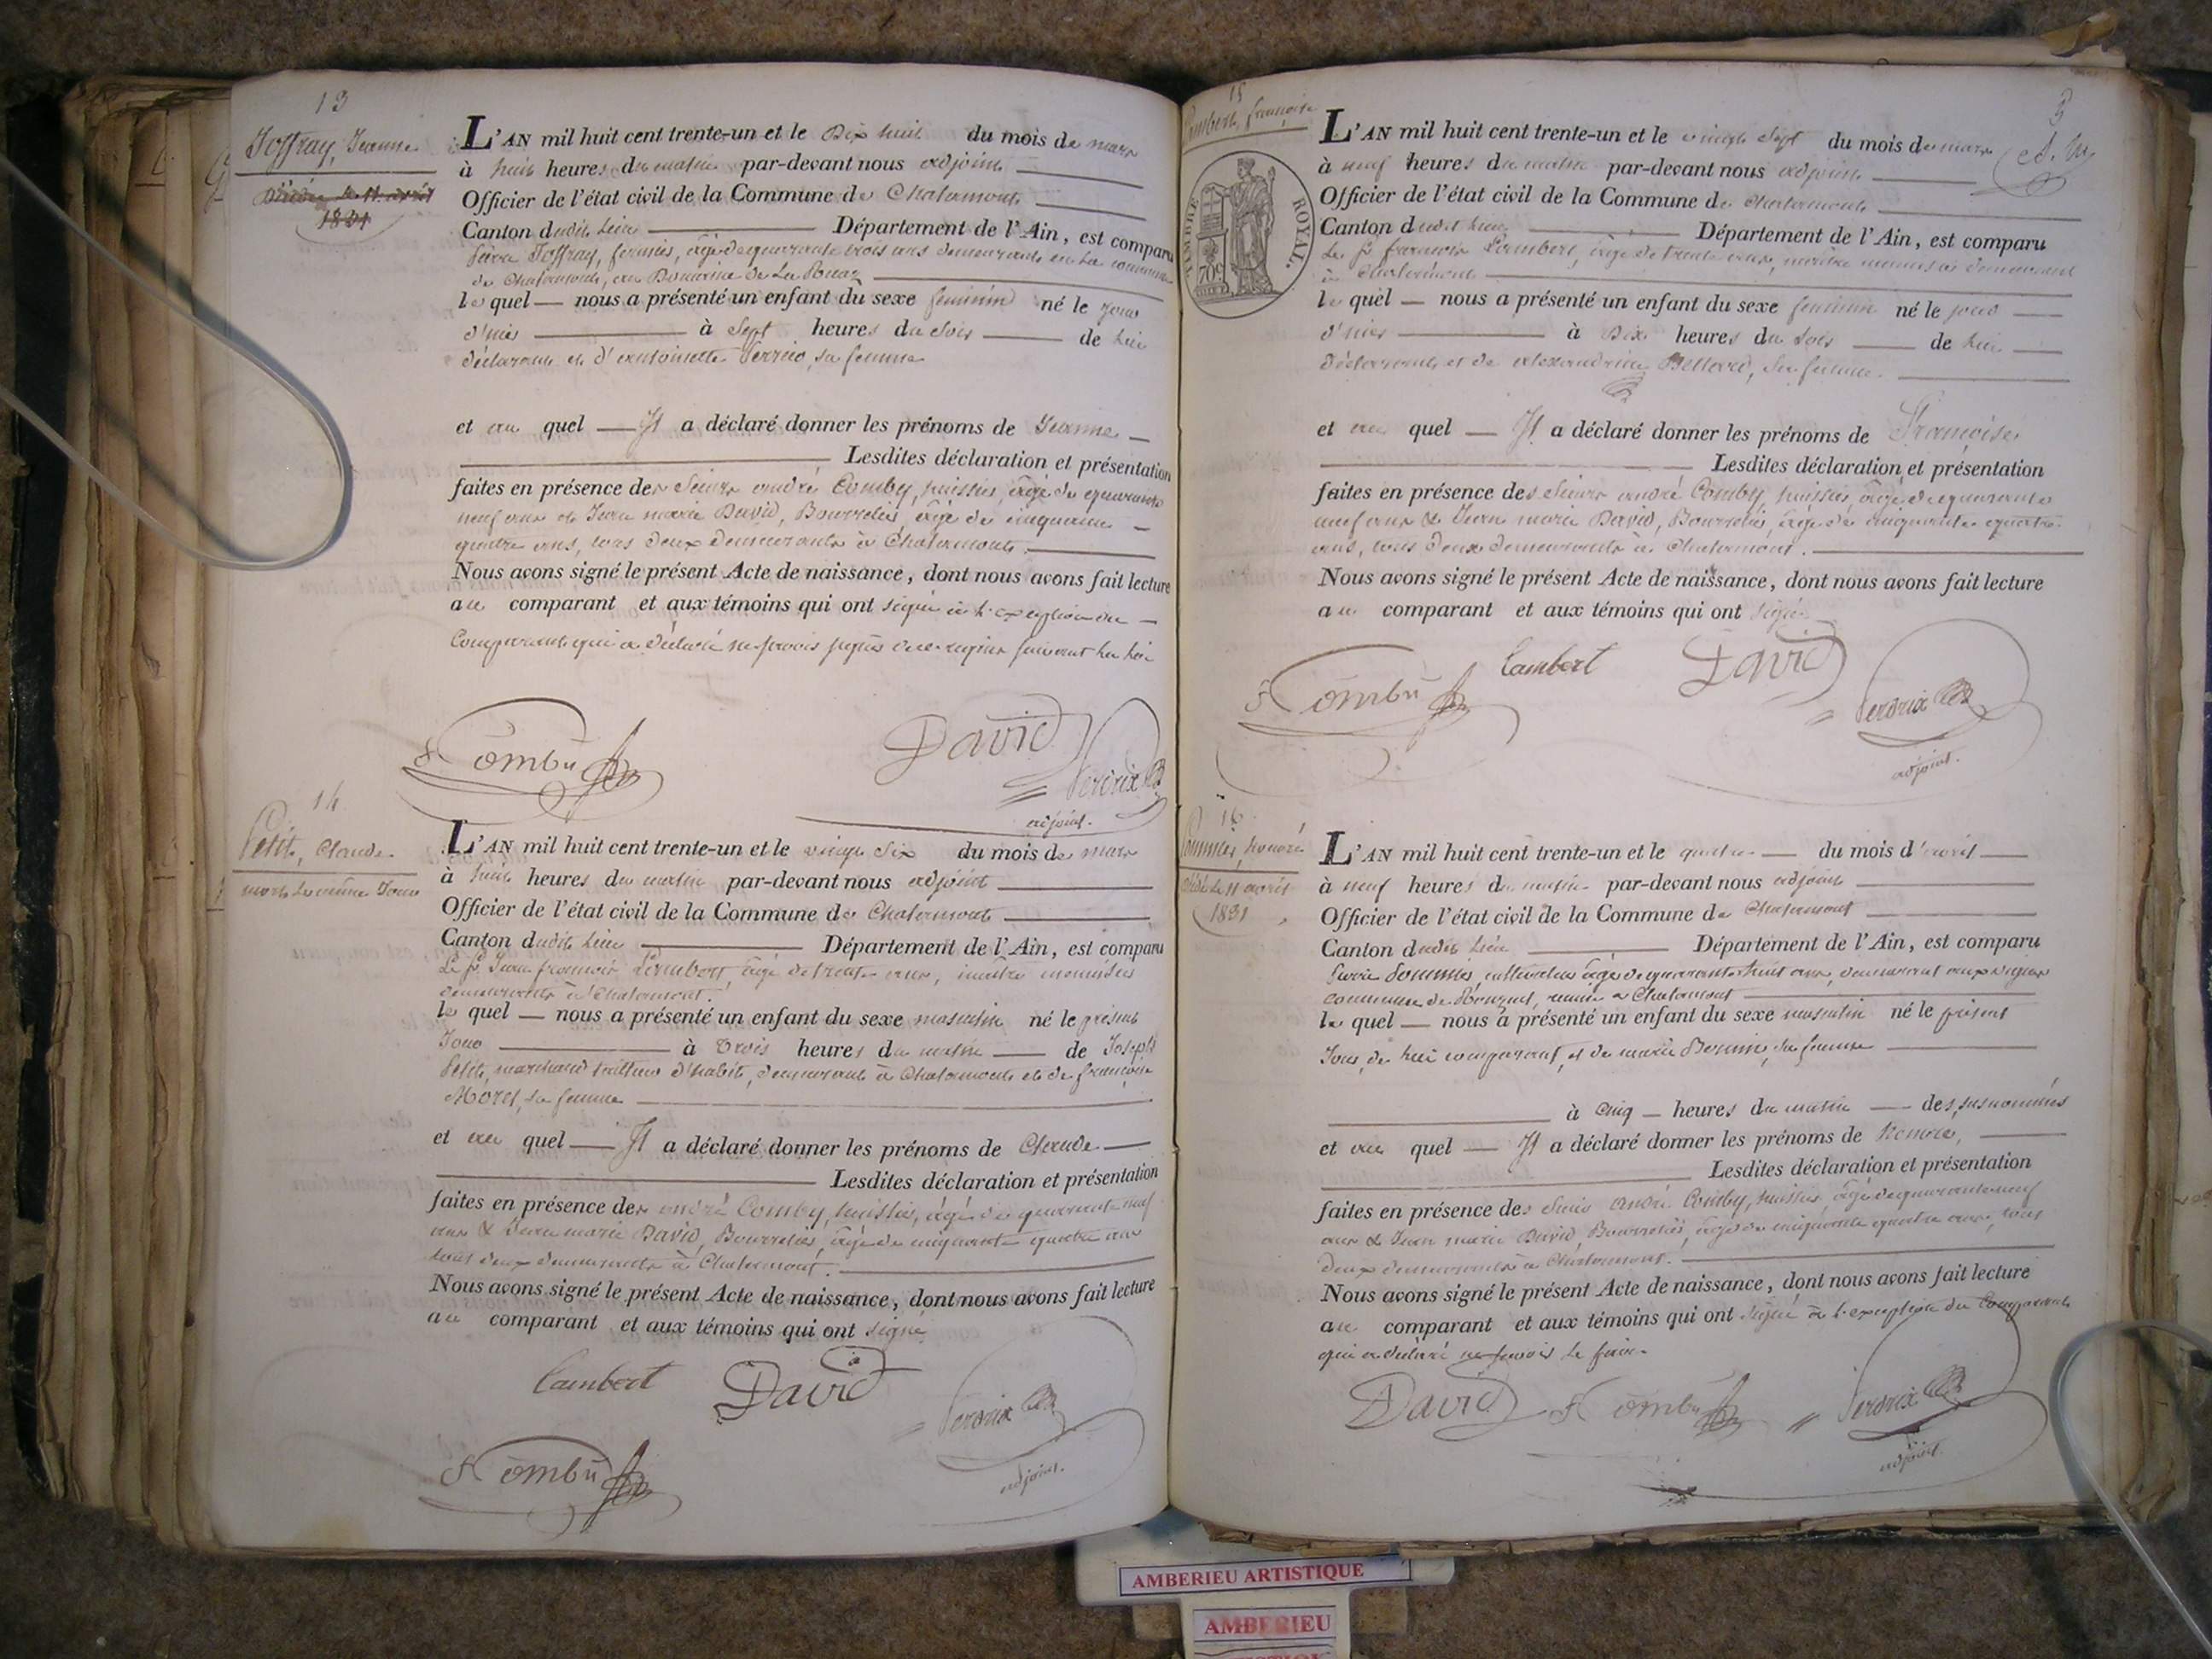 13
Joffray, Jeanne
Décédée le 11 avril
1831
L'AN mil huit cent trente-un et le Dix huit du mois de mars
à huit heures du matin par-devant nous adjoint
Officier de l'état civil de la Commune de Chalamont
Canton dudit lieu Département de l'Ain, est comparu
Pierre Joffray, fermier, âgé de quarante trois ans demeurant en la commune
de Chalamont, au Domaine de La
le quel nous a présenté un enfant du sexe féminin né le jour
d'hier à Sept heures du Soir de lui
déclarant et d'antoinette Perrier, sa femme
et au quel Il a déclaré donner les prénoms de Jeanne
Lesdites déclaration et présentation
faites en présence des Sieurs andré Comby, huissier, âgé de quarante
neuf ans et Jean marie David, Bourrelier, âgé de cinquante
quatre ans, tous deux demeurants à Chalamont.
Nous avons signé le présent Acte de naissance, dont nous avons fait lecture
au comparant et aux témoins qui ont signé à l'exception du
Comparant qui a déclaré ne savoir
Comby
David
Perdrix
adjoint.
14
Petit, Claude
mort le même Jour
L'AN mil huit cent trente-un et le vingt Six du mois de mars
à huit heures du matin par-devant nous adjoint
Officier de l'état civil de la Commune de Chalamont
Canton dudit lieu Département de l'Ain, est comparu
Le Sr Jean francois Lambert, âgé de trente ans, maître menuisier
demeurants à Chalamont.
le quel nous a présenté un enfant du sexe masculin né le présent
Jour à trois heures du matin de Joseph
Petit, marchand tailleur d'habits, demeurant à Chalamont et de françoise
Morel, sa femme
et au quel Il a déclaré donner les prénoms de Claude
Lesdites déclaration et présentation
faites en présence des andré Comby, huissier, âgé de quarante neuf
ans & Jean marie David, Bourrelier, âgé de cinquante quatre ans
tous deux demeurants à Chalamont.
Nous avons signé le présent Acte de naissance, dont nous avons fait lecture
au comparant et aux témoins qui ont signé
Lambert
David
Perdrix
adjoint.
Comby
15
Lambert, françoise
TIMBRE ROYAL.
3
L'AN mil huit cent trente-un et le vingt Sept du mois de mars
à neuf heures du matin par-devant nous adjoint
Officier de l'état civil de la Commune de Chalamont
Canton dudit lieu Département de l'Ain, est comparu
Le Sr francois Lambert, âgé de trente ans, maître menuisier demeurant
à Chalamont
le quel nous a présenté un enfant du sexe féminin né le jour
d'hier à Dix heures du Soir de lui
déclarant et de alexandrine Bellard, sa femme.
et au quel Il a déclaré donner les prénoms de Françoise
Lesdites déclaration et présentation
faites en présence des Sieurs andré Comby, huissier, âgé de quarante
neuf ans & Jean marie David, Bourrelier, âgé de cinquante quatre
ans, tous deux demeurants à Chalamont.
Nous avons signé le présent Acte de naissance, dont nous avons fait lecture
au comparant et aux témoins qui ont signé
Comby
Lambert
David
Perdrix
adjoint.
16
Pommier, honoré
décédé le 11 avril
1831
L'AN mil huit cent trente-un et le quatre du mois d'avril
à neuf heures du matin par-devant nous adjoint
Officier de l'état civil de la Commune de Chalamont
Canton dudit lieu Département de l'Ain, est comparu
Pierre Pommier, cultivateur âgé de quarante huit ans, demeurant aux vignes
commune de Ronzuel, réunie à Chalamont
le quel nous a présenté un enfant du sexe masculin né le présent
Jour, de lui comparant, et de marie sa femme
à cinq heures du matin des susnommés
et au quel Il a déclaré donner les prénoms de honoré,
Lesdites déclaration et présentation
faites en présence des Sieurs André Comby, huissier âgé de quarante neuf
ans & Jean marie David, Bourrelier, âgé de cinquante quatre ans, tous
deux demeurants à Chalamont.
Nous avons signé le présent Acte de naissance, dont nous avons fait lecture
au comparant et aux témoins qui ont signé à l'exception du Comparant
qui a déclaré ne savoir le faire.
David
Comby
Perdrix
adjoint.
AMBERIEU ARTISTIQUE
AMBERIEU